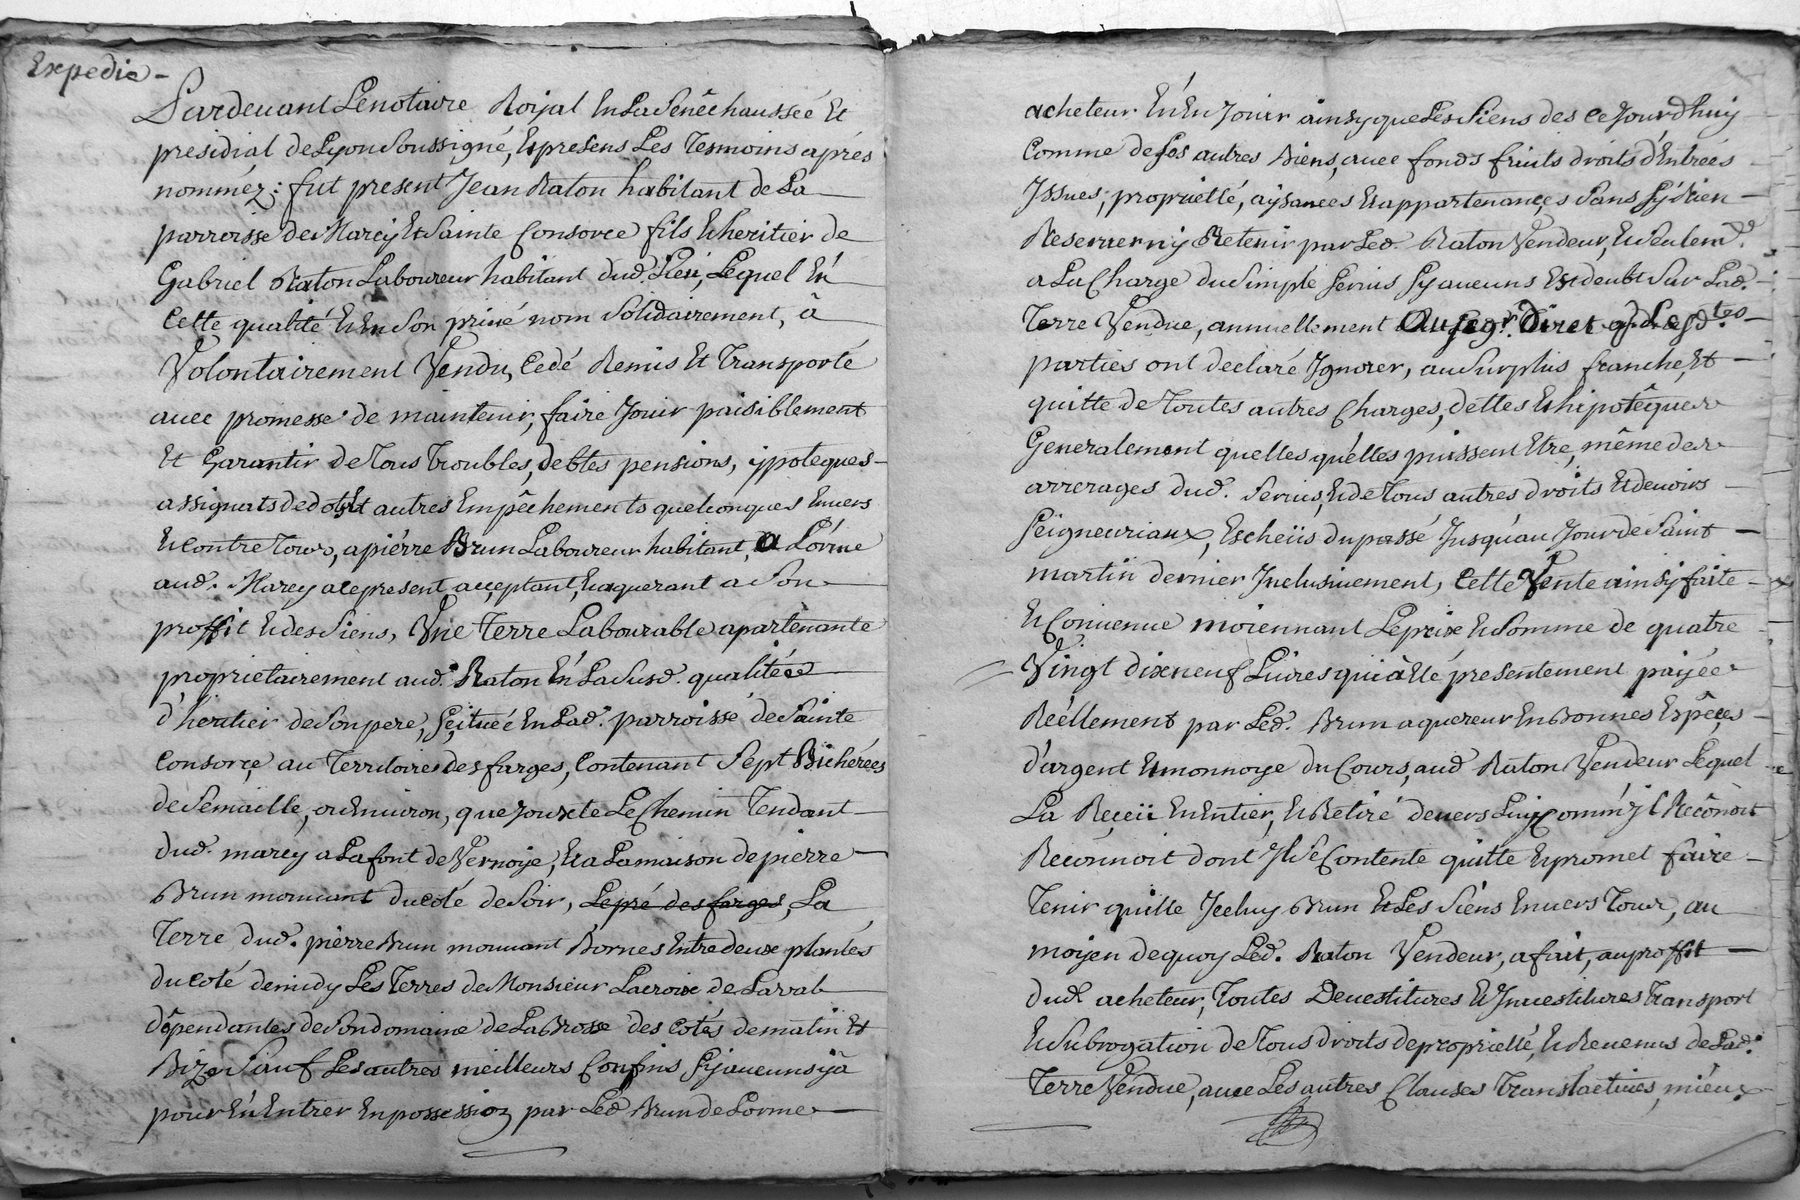 Expedié -
Pardevant Le notaire Roijal En La Senêchaussée Et
presidial de Lyon Soussigné, Et presens Les Tesmoins aprés
nommèz; fut present Jean Raton habitant de La
parroisse de Marcy Et Sainte Consorce fils Et heritier de
Gabriel Raton Laboureur habitant dud. Lieu, Lequel En
Cette qualité Et En Son privé nom Solidairement, â
Volontairement Vendu, Cedé Remis Et Transporté
avec promesse de maintenir, faire Jouir paisiblement
Et Garantir de Tous Troubles, debtes pensions, ÿpoteques
assignats de dots Et autres Empêchements quelconques Envers
Et Contre Tous, a piérre Brun Laboureur habitant, a Lórme
aud. Marcy a ce present acceptant, Et aquerant a Son
proffit Et des Siens, Une Terre Labourable apartenante
proprietairement aud. Raton En La Susd. qualitée
d'heritier de Son pere, Scituée En Lad. parroisse de Sainte
Consorce au Territoire des farges, Contenant Sept Bichérées
de Semaille, ou Environ, que Jouxte Le Chemin Tendant
dud. marcy a La font de Vernoye, Et a La maison de pierre
Brun mouvant du coté de Soir, Le pré des farges, La
Terre dud. pierre Brun mouvant Bornes Entre deux plantés
du coté de midy Les Terres de Monsieur Lacroix de Laval
dêpendantes de Son domaine de La Brosse des cotés de matin Et
Bize Sauf Les autres meilleurs Confins Sy aucuns y â
pour En Entrer En possession par Led Brun de Lorme
acheteur Et En Jouir ainsy que Les Siens des ce Jourdhuy
Comme de Ses autres Biens, avec fonds fruits droits d'Entrées
Issues, proprietté, aysances Et appartenances Sans Sÿ Rien
Reserver ny Retenir par Led. Raton Vendeur, Et Seulemt.
a La Charge du Simple Servis Sy aucuns Est deubt Sur Lad.
Terre Vendue, annuellement Au Segr. Direct q. Lesdtes
parties ont declaré Ignorer, au Surplus franche, Et
quitte de Toutes autres Charges, dettes Et hipotêques
Generalement quelles qu'elles puissent Etre, même des
arrerages dud. Servis, Et de Tous autres droits Et devoirs
Seigneuriaux, Escheüs du passé Jusqu'au Jour de Saint
martin dernier Inclusivement, Cette Vente ainsÿ faite
Et Convenue moiennant Le prix Et Somme de quatre
Vingt dixneuf Livres qui à Eté presentement paiyée
Réellement par Led. Brun aquereur En Bonnes Espêces
d'argent Et monnoye du Cours, aud Raton Vendeur Lequel
La Reçeüe En Entier, Et Retiré devers Luy comm'jl Recônoit
Reconnoit dont Il Se Contente quitte Et promet faire
Tenir quitte Jceluy Brun Et Les Siéns Envers Tous, au
moyen de quoy Led. Raton Vendeur, a fait, au proffit
dud acheteur, Toutes Devestitures Et Investitures Transport
Et Subrogation de Tous droits de proprietté, Et Revenus de Lad.
Terre Vendue, avec Les autres Clauses Translactives, mieux